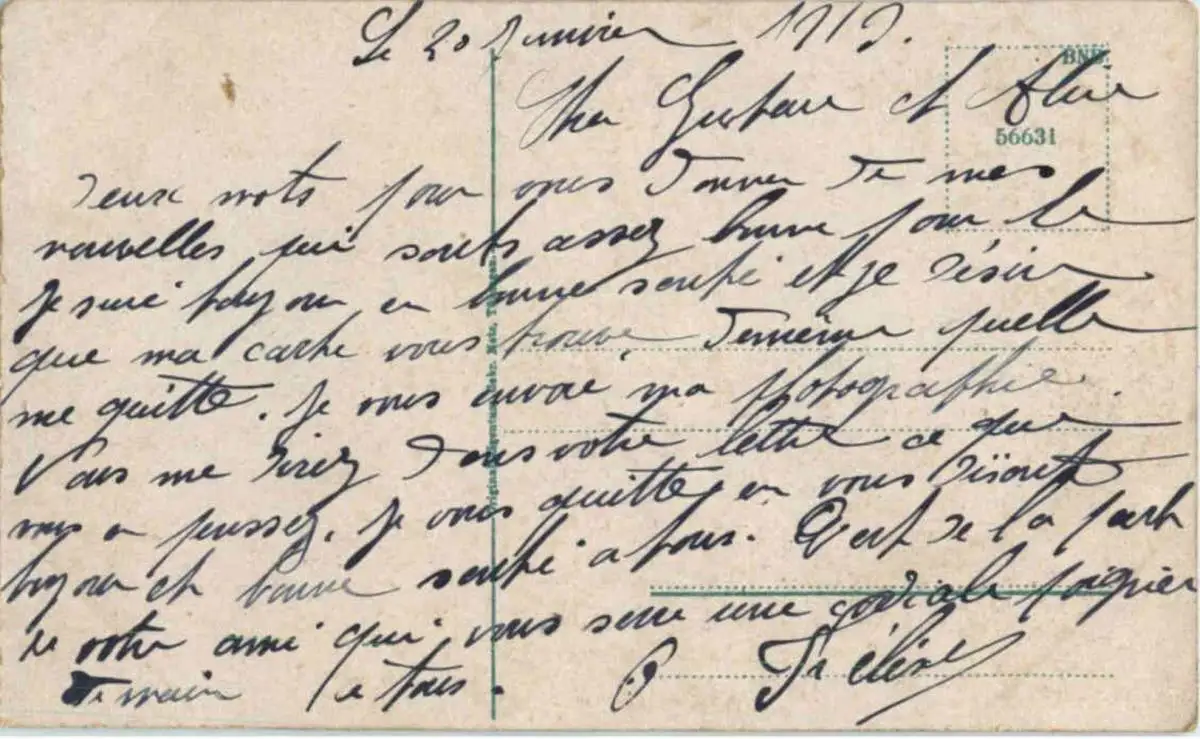 Le 20 Janvier 1919.
BNB
Cher Gustave et Aline
56631
Deux mots pour vous donner de mes
nouvelles qui sont assez bonne pour le
Je suis toujour en bonne santé et je désir
que ma carte vous trouve de même quelle
me quitte. Je vous envoie ma photographie.
Vous me direz dans votre lettre ce que
vous en pensez. Je vous quitte en vous disant
toujour et bonne santé a tous. C'est de la part
de votre ami qui vous serre une cordiale poignier
de main a tous.